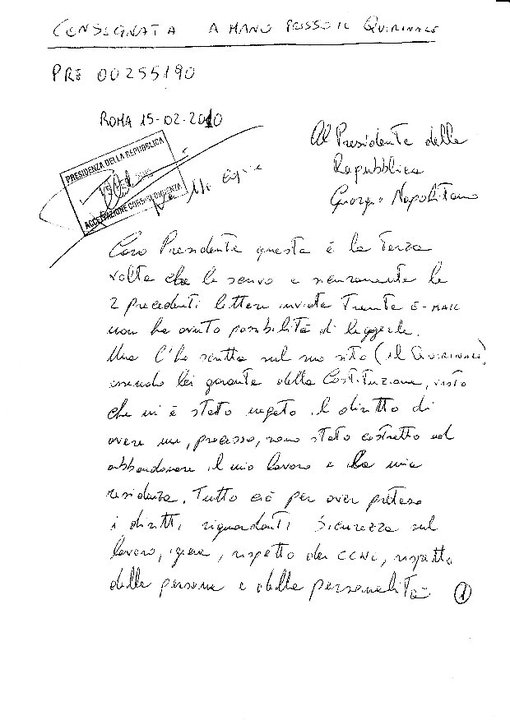 CONSEGNATA A MANO PRESSO IL QUIRINALE
PRE 00255190
ROMA 15-02-2010
Al Presidente della
Repubblica
Giorgio Napolitano
PRESIDENZA DELLA REPUBBLICA
ACCETTAZIONE CORRISPONDENZA
Caro Presidente questa è la terza
volta che le scrivo e sicuramente le
2 precedenti lettere inviate tramite E-MAIL
non ha avuto possibilità di leggerle.
Una l'ho scritta sul suo sito (il QUIRINALE)
essendo lei garante della Costituzione, visto
che mi è stato negato il diritto di
avere un, processo, sono stato costretto ad
abbandonare il mio lavoro e la mia
residenza. Tutto ciò per aver preteso
i diritti riguardanti sicurezza sul
lavoro, igiene, rispetto del CCNL, rispetto
delle persone e della personalità 1